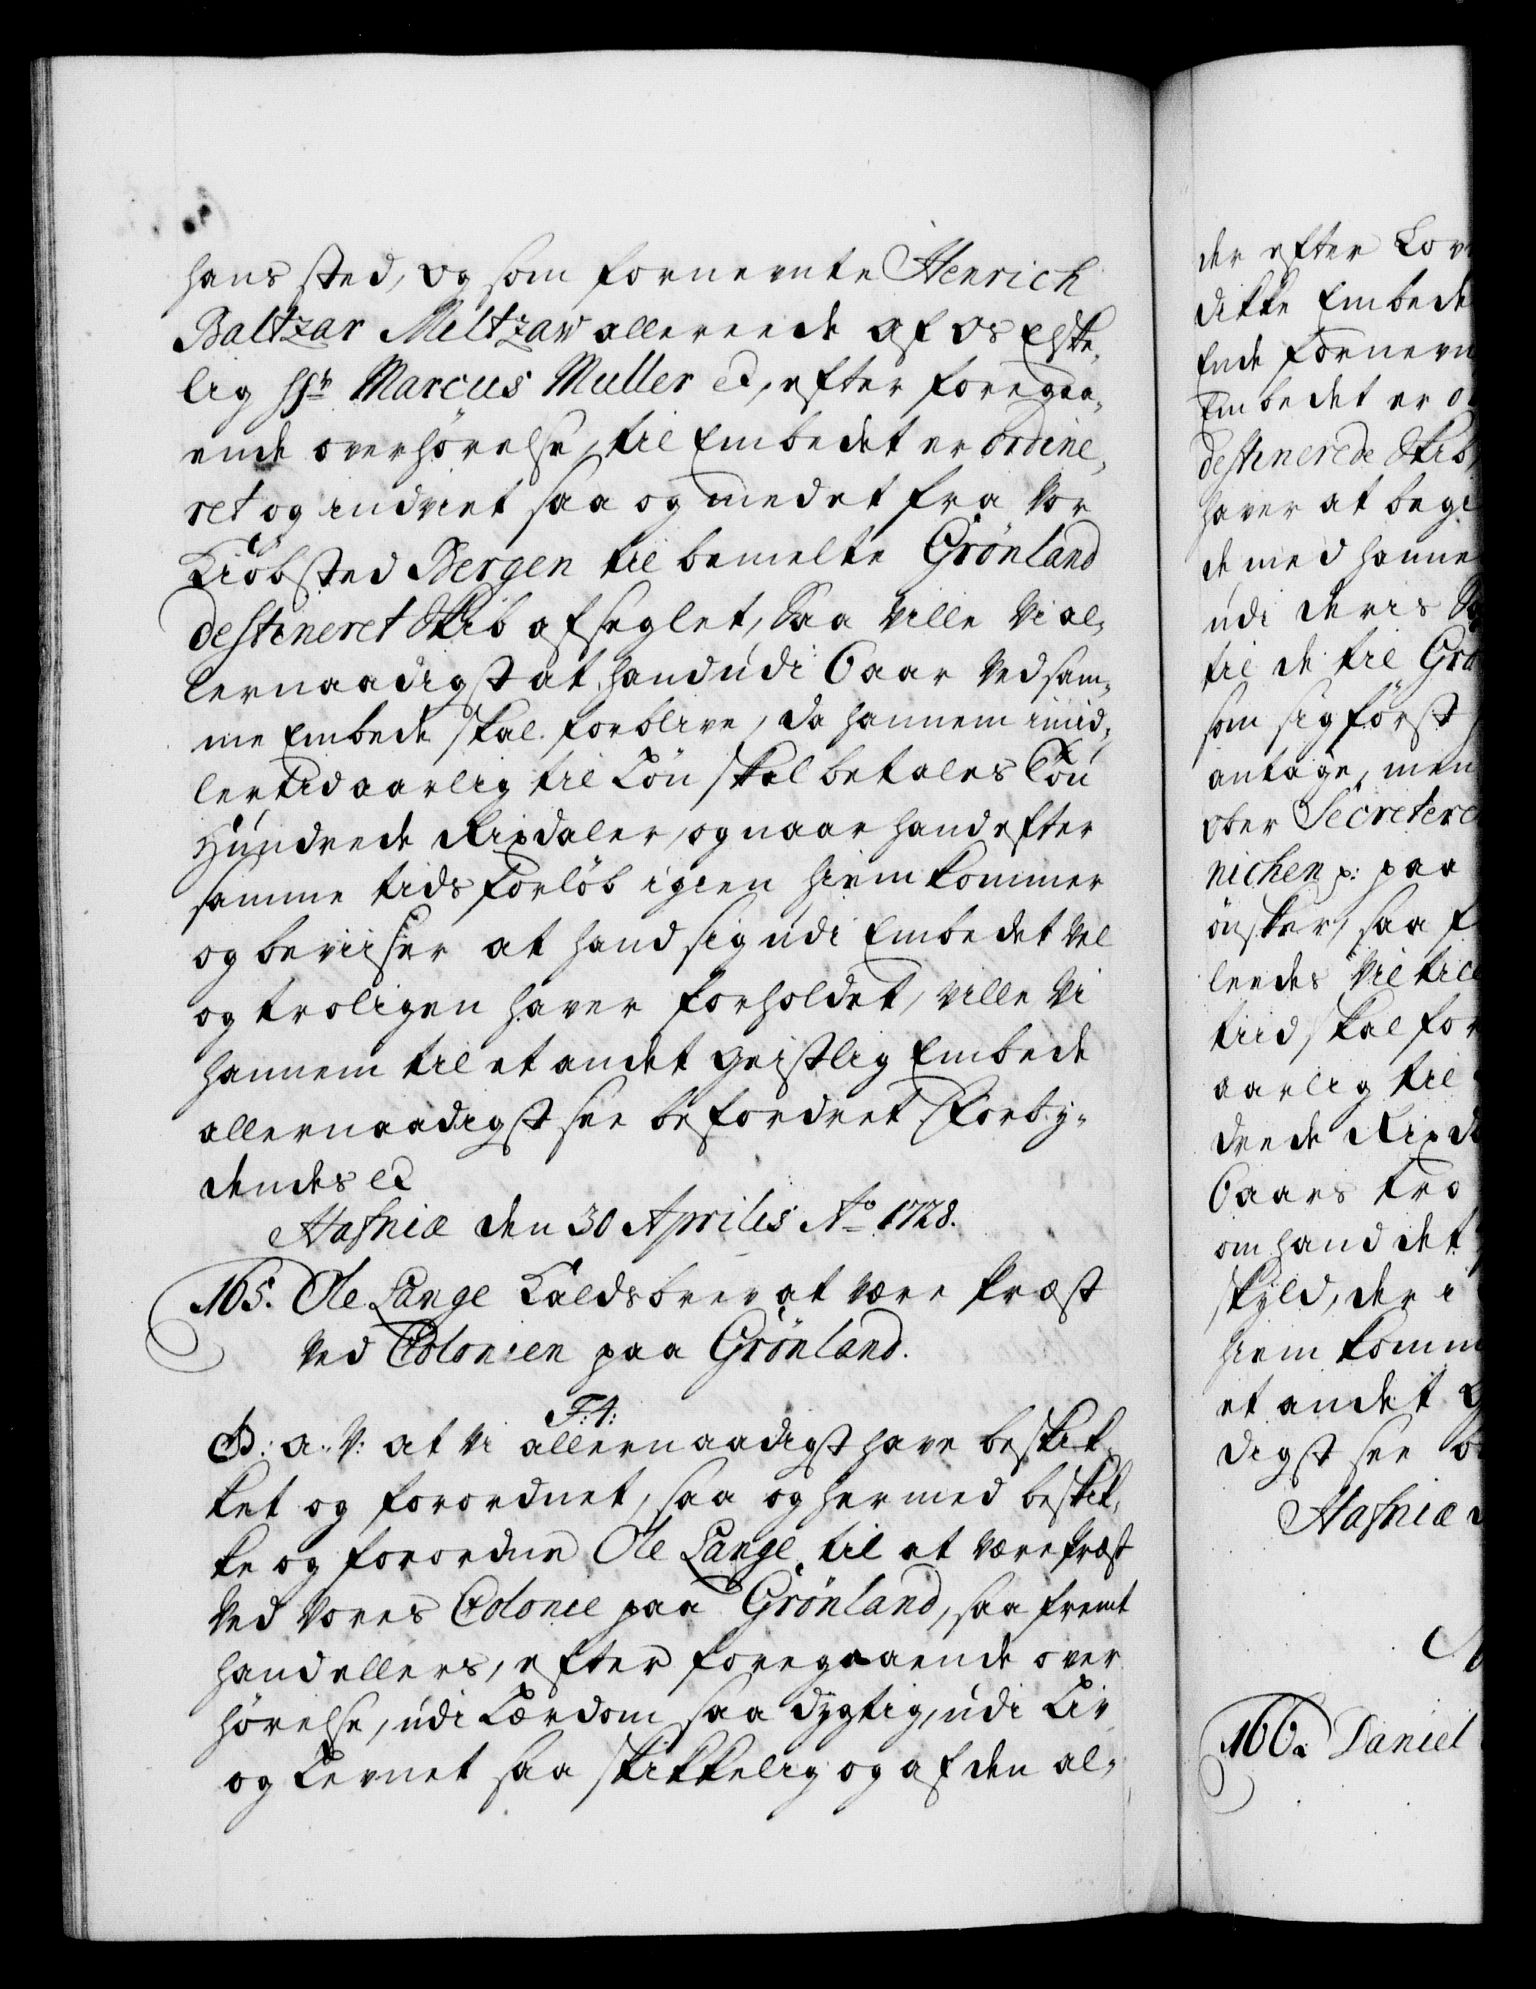 hans sted, og som fornevnte Henrich
Baltzar Meltzaw allereede af os Elske,
lig Hr Marcus Muller et, efter foregaa,
ende overhørelse, til Embedet er ordine,
ret og indviet saa og med et fra Vor
Kiøbsted Bergen til bemelte Grønland
destineret Skib afseglet, Saa ville Vi al,
lernaadigst at hand udi 6 aar Ved sam,
me Embede skal forblive, da hannem imid,
lertid aarlig til Løn skal betales Toe
Hundrede Rixdaler, og naar hand efter
samme tids Forløb igien hiem kommer
og beviiser at hand sig udi Embedet Vel
og troligen haver forholdet, ville Vi
hannem til et andet Geistlig Embede
allernaadigst see befordret Forby,
dendes et
Hafniæ den 30 Aprilis Ao 1728.
165. Ole Lange Kaldsbrev at være Præst
Ved Colonien paa Grønland.
F: 4:
G: a: V: at Vi allernaadigst have beskik,
ket og forordnet, saa og hermed beskik,
ke og forordne Ole Lange til at være Præst
Ved Vores Colonie paa Grønland, saa fremt
hand ellers, efter foregaaende over
hørelse, udi Lærdom saa dygtig, udi Liv
og Levnet saa skikkelig og af den al,
der efter Lov
dikke Embede
Ende fornevn
Embedet er o
destinerede Skib
haver at begi
de med hanne
udi deris S
til de til Grø
som sig først
antage, men
ober Secretere
nichen p: paa
ønsker, saa f
leedes Vil till
tiid skal for
aarlig til
drede Rixda
6 aars tro
om hand det
skyld, der i
hiem komm
et andet G
digst see be
Hafniæ d
166. Daniel